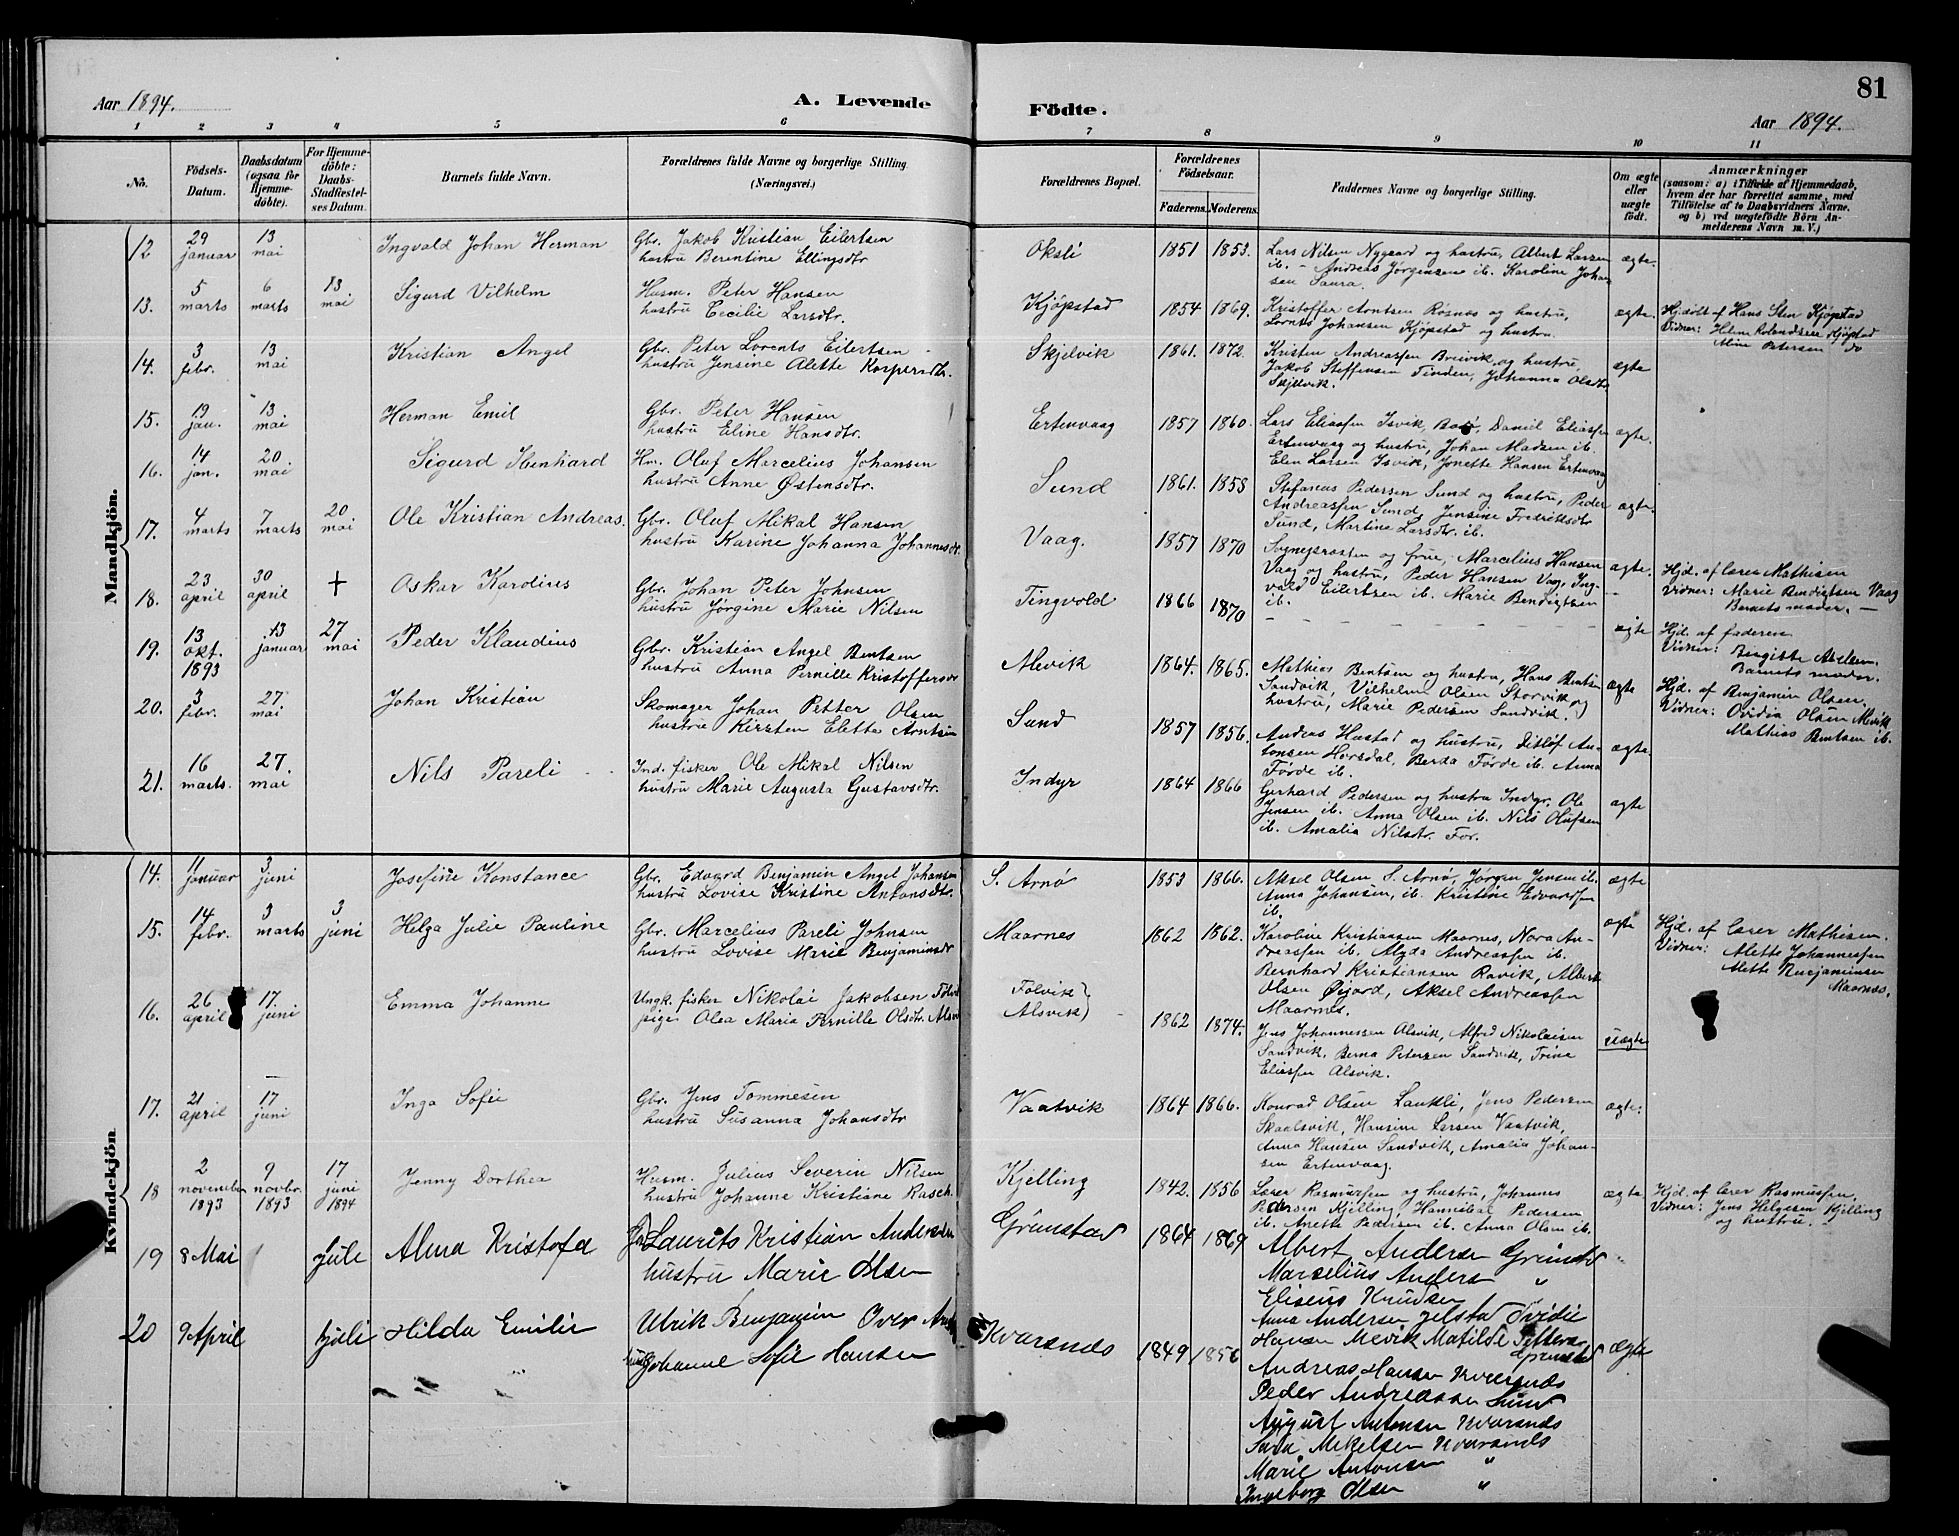 81
Aar 1894. A. Levende Födte. Aar 1894.
1 2 3 4 5 6 7 8 9 10 11
No. Födsels-Datum. Daabsdatum (ogsaa for Hjemmedöbte). For Hjemmedöbte: Daabs-Stadfæstelses Datum. Barnets fulde Navn. Forældrenes fulde Navne og borgerlige Stilling. (Næringsvei.) Forældrenes Bopæl. Forældrenes Födselsaar. Faderens. Moderens. Faddernes Navne og borgerlige Stilling. Om ægte eller uægte födt. Anmærkninger (saasom: a) i Tilfælde af Hjemmedaab, hvem der har forrettet samme, med Tilföielse af to Daabsvidners Navne, og b) ved uægtefödte Börn Anmelderens Navn m. V.)
Mandkjön.
12 29 januar 13 mai Ingvald Johan Herman Gbr. Jakob Kristian Eilertsen
hustru Berentine Ellingsdtr Oksli 1851 1853. Lars Nilsen Nygaard og hustru, Albert Larsen
ib. - Andreas Jørgensen ib. Karoline Johan
sen Saura. ægte.
13. 5 marts 6 marts 13 mai Sigurd Vilhelm Husm. Peter Hansen
hustru Cecilie Larsdtr. Kjøpstad 1854 1869. Kristoffer Arntsen Rosnes og hustru,
Lornts Johansen Kjøpstad og hustru ægte. Hjdøbt af Hans Sten Kjøpstad
Vidner: Rolandsen Kjøpstad
Petersen do
14. 3 febr. 13 mai Kristian Angel Gbr. Peter Lorents Eilertsen
hustru Jensine Alette Kaspersdtr. Skjelvik 1861. 1872. Kristen Andreassen Breivik og hustru,
Jakob Steffensen Tinden, Johanna Olsdtr
Skjelvik. ægte
15. 19 jan. 13 mai Herman Emil Gbr. Peter Hansen
hustru Eline Hansdtr. Ertenvaag 1857 1860. Lars Eliassen Isvik, Daniel Eliassen
Ertenvaag og hustru, Johan Madsen ib.
Elen Larsen Isvik, Jonette Hansen Ertenvaag ægte.
16. 14 jan. 20 mai Sigurd Ibenhard Hm. Oluf Marcelius Johansen
hustru Anne Østensdtr. Sund 1861. 1858 Stefanus Pedersen Sund og hustru, Peder
Andreassen Sund, Jensine Fredriksdtr
Sund, Martine Larsdtr. ib. ægte.
17. 4 marts 7 marts 20 mai Ole Kristian Andreas. Gbr. Oluf Mikal Hansen
hustru Karine Johanna Johannesdtr. Vaag. 1857 1870 Sogneprosten og frue, Marcelius Hansen
Vaag og hustru, Peder Hansen Vaag, Ing-
vald Eilertsen ib. Marie Bendigtsen
ib. ægte. Hjd. af lærer Mathisen
Vidner: Marie Bendigtsen Vaag
Barnets moder. —
18. 23 april 30 april + Oskar Karolius Gbr. Johan Peter Johnsen
hustru Jørgine Marie Nilsen Tingvold 1866 1870 - - - - - - ægte Hjd. af faderen
Vidner: Birgitte Abelsen.
Barnets moder.
19. 13 okt. 1893 13 januar 27 mai Peder Klaudius Gbr. Kristian Angel Bentsen
hustru Anna Pernille Kristoffersdtr Mevik 1864. 1865. Mathias Bentsen og hustru, Hans Bentsen
Sandvik, Vilhelm Olsen Storvik og
hustru, Marie Pedersen Sandvik. ægte Hjd. af Benjamin Olsen
Vidner: Ovidia Olsen Mevik
Mathias Bentsen ib.
20. 3 febr. 27 mai Johan Kristian Skomager Johan Petter Olsen
hustru Kirsten Elette Arntsen Sund 1857 1856. Andreas Hæstad og hustru, Ditlof An-
tonsen Horsdal, Berda Førde ib. Anna
Førde ib. ægte.
21. 16 marts. 27. mai Nils Pareli Ind. fisker Ole Mikal Nilsen
hustru Marie Augusta Gustavsdtr. Indyr 1864 1866 Gerhard Pedersen og hustru Indyr. Ole
Jensen ib. Anna Olsen ib. Nils Olufsen
ib. Amalia Nilsdtr. For. ægte
Kvindekjön
14. 11 januar 3 juni Josefine Konstance Gbr. Edvard Benjamin Angel Johansen
hustru Lovise Kristine Antonsdtr. S. Arnø 1853 1866. Aksel Olsen S. Arnø, Jørgen Jensen ib.
Anna Johansen, ib. Kristine Edvardsen
ib. ægte
15. 14 febr. 3 marts 3 juni Helga Julie Pauline Gbr. Marcelius Pareli Johnsen
hustru Lovise Marie Benjaminsdtr Maarnes 1862 1862. Karoline Kristiansen Maarnes, Nora An-
dreassen ib. Alyda Andreassen ib.
Bernhard Kristiansen Ravik, Albert
Olsen Øijord, Aksel Andreassen
Maarnes. ægte Hjd. af lærer Mathisen.
Vidner: Alette Johannessen
Alette Benjaminsen
Maarnes.
16. 26 april 17 juni Emma Johanne Ungk. fisker Nikolai Jakobsen
pige Olea Maria Pernille Olsdtr. Følvik
Alsvik 1862 1874. Jens Johannessen Alsvik, Alfred Nikolaisen
Sandvik, Berna Petersen Sandvik, Trine
Eliassen Alsvik. Uægte
17. 21 april 17 juni Inga Sofie Gbr. Jens Tommesen
hustru Susanna Johansdtr Vaatvik 1864 1866. Konrad Olsen, Jens Pedersen
Skaalsvik, Hansine Larsen Vaatvik,
Anna Hansen Sandvik, Amalia Johan-
sen Ertenvaag. ægte.
18 2 november 1893 9 novbr. 1893 17 juni 1894 Jenny Dorthea Husm. Julius Severin Nilsen
hustru Johanne Kristiane Rasch Kjelling 1842. 1856 Lærer Rasmussen og hustru, Johannes
Pedersen Kjelling, Hannibal Pedersen
ib. Anette Pedersen ib. Anna Olsen ib. ægte Hjd. af lærer Rasmussen,
Vidner: Jens Helgesen Kjelling
og hustru.
19 8 Mai Juli Alma Kristofa Laurits Kristian Andersen
hustru Marie Olsen Grimstad 1864 1869 Albert Andersen
Marselius Anders "
Eliseus Knudsen "
Anna Andersen Jelstad Ovidie
Hansen Mevik Matilde
Grimstad "
20 9 April juli Hilda Emilie Ulrik Benjamin Over
Johanne Sofie Hansen Kvarsnds 1849 1856 Andreas Hansen Kvarsnds
Peder Andreassen Sund
August Antonsen Kvarsnds
Sara Mikelsen Kvarsnds
Marie Antonsen "
Ingeborg Olsen " ægte